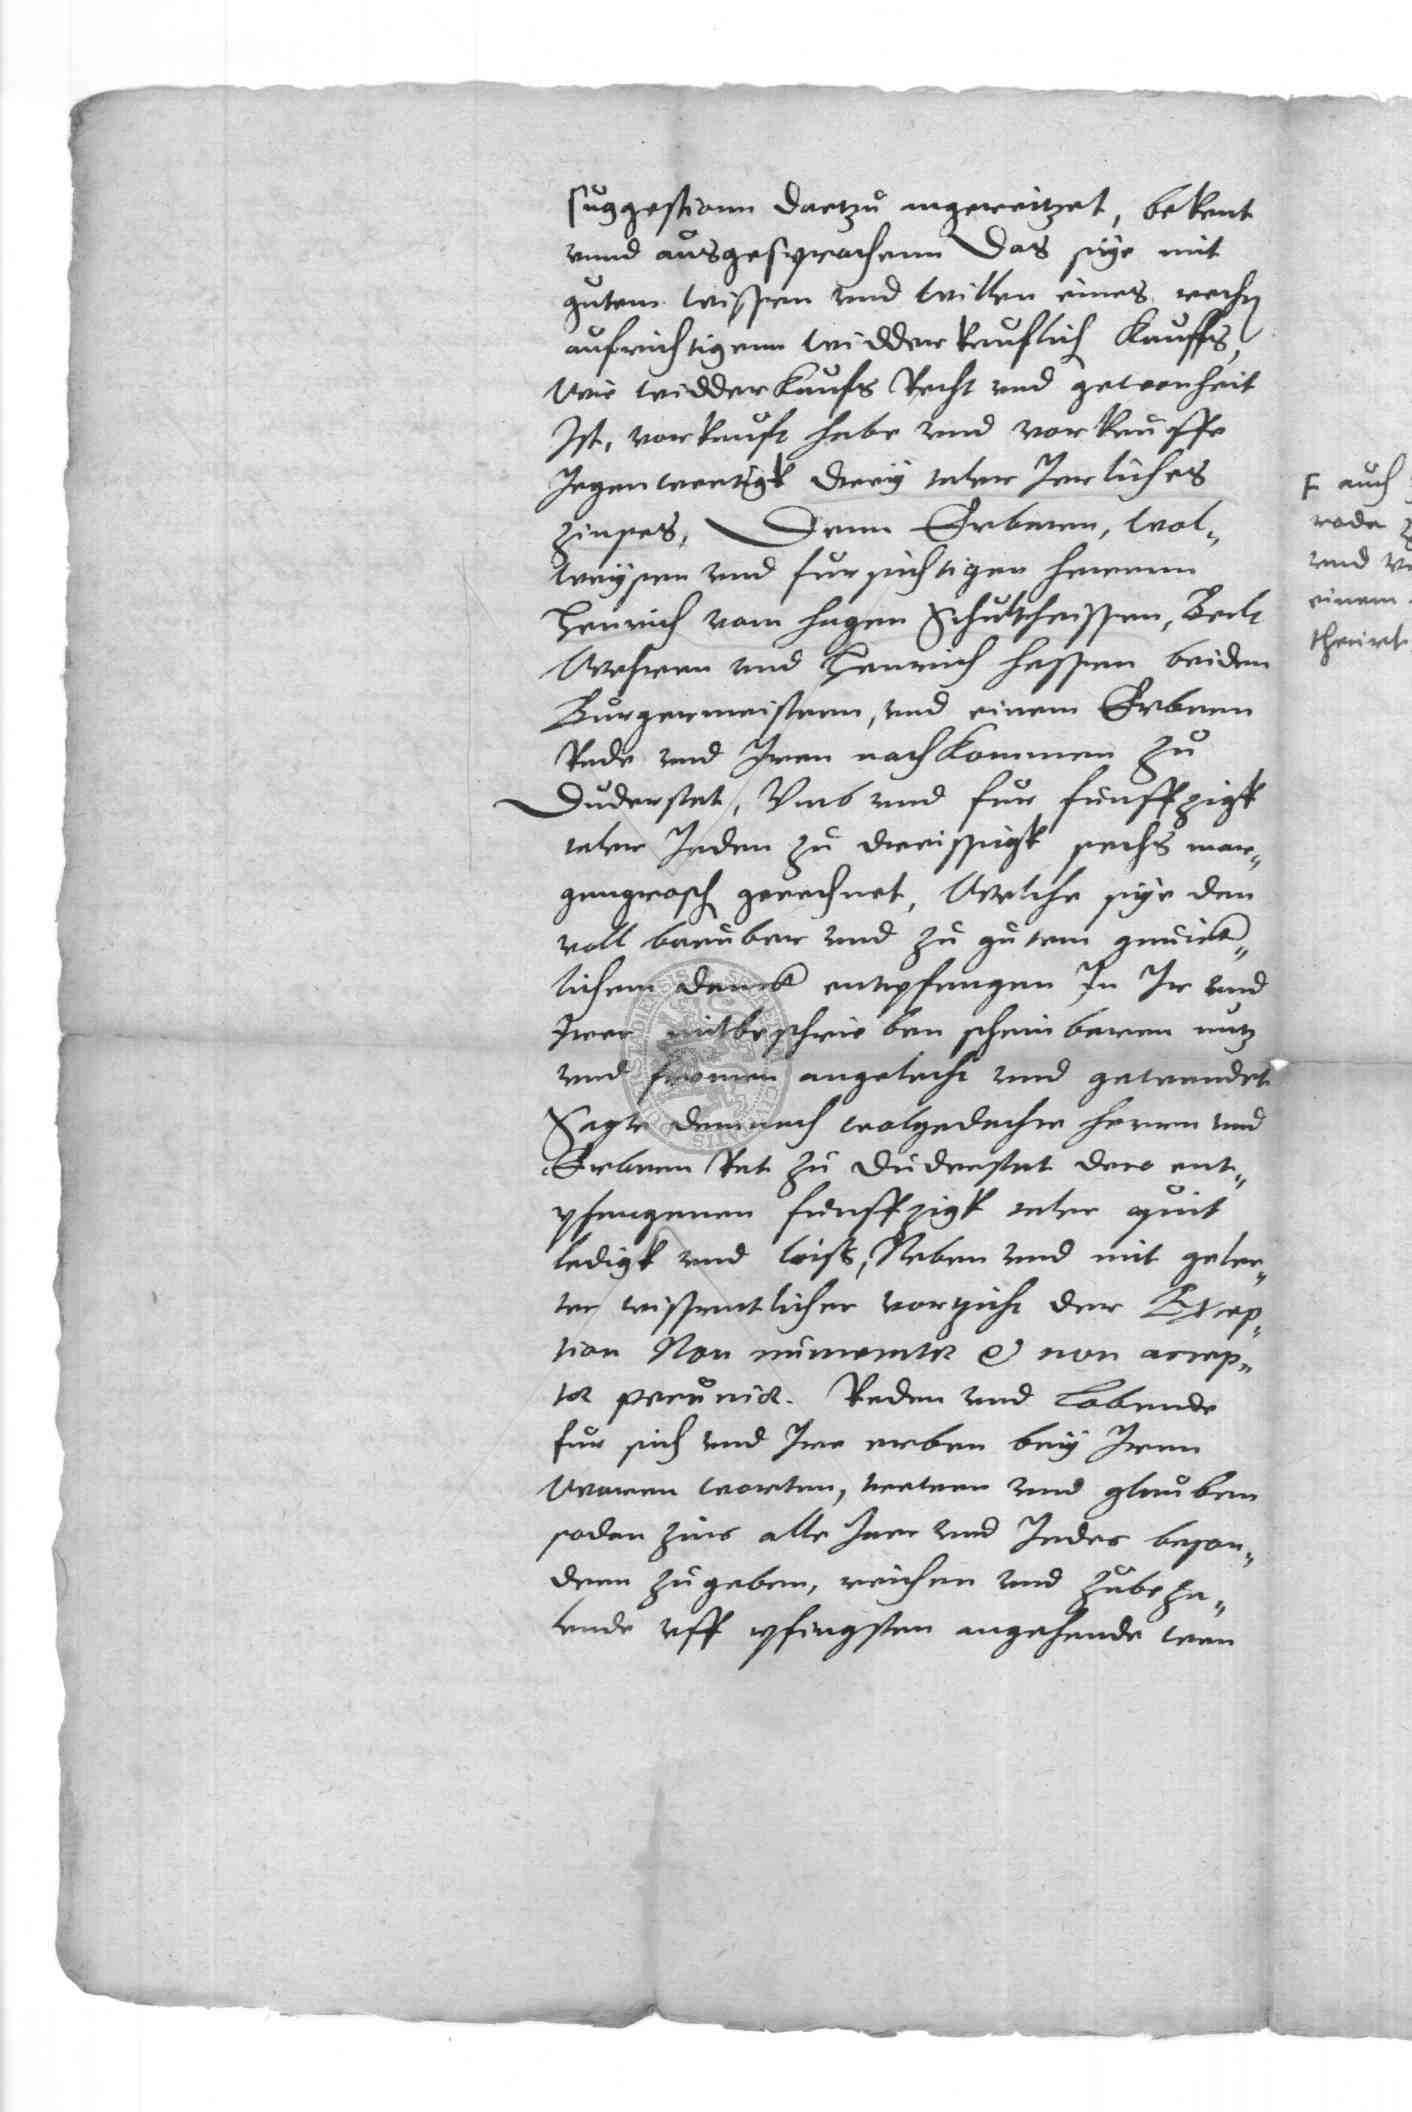 suggestionn dartzu angereitzet, bekent
unnd ausgesprochenn Das sye mit
gutem wissen und willen eines rech
aufrichtigenn widderkeuflich Kauffs,
Wie widderkaufs Recht und gewonheit
Ist, vorkauft habe und vorkeuffe
Jegenwertigk drey taler Jerliches
Zinses, Denn Erbaren, wol„
weysen und fursichtigen herrenn
Henrich vom hagen Schultheissen, Bert
Wehren und Henrich hessen beiden
Burgermeistern, und einem Erbaren
Rade und Iren nachkommen zu
Duderstat, Umb und fur funffzigk
taler Jeden zu dreissigk sechs mar„
gengrosch gerechnet, Welche sye den
voll baruber und zu gutem
lichem danck entpfangen In Ir und
Irer mitbeschrieben scheinbaren nutz
und fromen angelecht und gewendet
Sagte demnach wolgedachte herren und
Erbaren Rat zu Duderstat dero ent„
pfangenen funffzigk taler quit
ledigk und loiß, Neben und mit geler„
ter wissentlicher vorzicht der Excep„
tion Non numeratæ & non accep„
tæ pecuniæ. Reden und Lobende
fur sich und Ire erben bey Iren
Waren worten, trewen und glauben
sodan zins alle Jaer und Jedes beson„
dern zugeben, reichen und zubeza„
lende uff pfingsten angehende wen
F auch
rade
und
einem